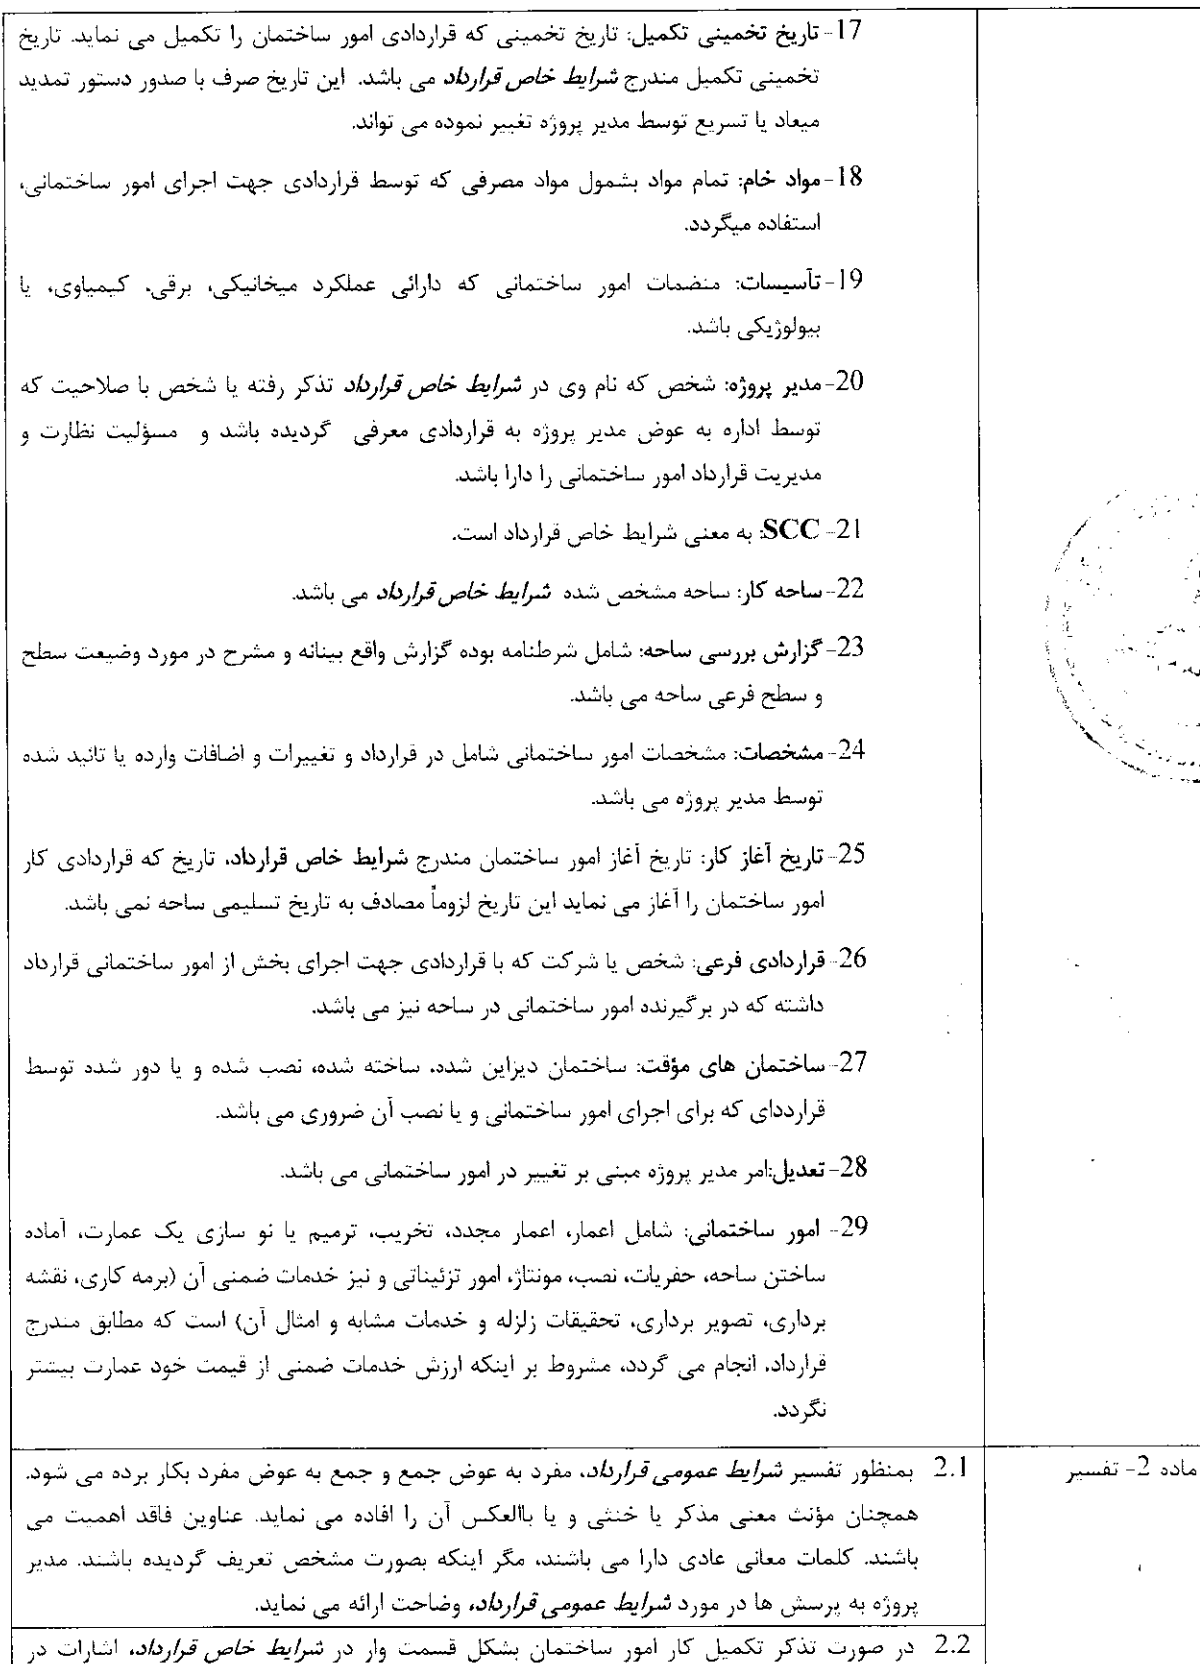 17- تاریخ تخمینی تکمیل: تاریخ تخمینی که قراردادی امور ساختمان را تکمیل می نماید. تاریخ
تخمینی تکمیل مندرج شرایط خاص قرارداد می باشد. این تاریخ صرف با صدور دستور تمدید
میعاد یا تسریع توسط مدیر پروژه تغییر نموده می تواند.
18- مواد خام: تمام مواد بشمول مواد مصرفی که توسط قراردادی جهت اجرای امور ساختمانی،
استفاده میگردد.
19- تأسیسات: منضمات امور ساختمانی که دارائی عملکرد میخانیکی، برقی، کیمیاوی، یا
بیولوژیکی باشد.
20- مدیر پروژه: شخص که نام وی در شرایط خاص قرارداد تذکر رفته یا شخص با صلاحیت که
توسط اداره به عوض مدیر پروژه به قراردادی معرفی گردیده باشد و مسؤلیت نظارت و
مدیریت قرارداد امور ساختمانی را دارا باشد.
21- SCC: به معنی شرایط خاص قرارداد است.
22- ساحه کار: ساحه مشخص شده شرایط خاص قرارداد می باشد.
23- گزارش بررسی ساحه: شامل شرطنامه بوده گزارش واقع بینانه و مشرح در مورد وضیعت سطح
و سطح فرعی ساحه می باشد.
24- مشخصات: مشخصات امور ساختمانی شامل در قرارداد و تغییرات و اضافات وارده یا تائید شده
توسط مدیر پروژه می باشد.
25- تاریخ آغاز کار: تاریخ آغاز امور ساختمان مندرج شرایط خاص قرارداد، تاریخ که قراردادی کار
امور ساختمان را آغاز می نماید این تاریخ لزوماً مصادف به تاریخ تسلیمی ساحه نمی باشد.
26- قراردادی فرعی: شخص یا شرکت که با قراردادی جهت اجرای بخش از امور ساختمانی قرارداد
داشته که در برگیرنده امور ساختمانی در ساحه نیز می باشد.
27- ساختمان های مؤقت: ساختمان دیزاین شده، ساخته شده، نصب شده و یا دور شده توسط
قرارددای که برای اجرای امور ساختمانی و یا نصب آن ضروری می باشد.
28- تعدیل:امر مدیر پروژه مبنی بر تغییر در امور ساختمانی می باشد.
29- امور ساختمانی: شامل اعمار، اعمار مجدد، تخریب، ترمیم یا نو سازی یک عمارت، آماده
ساختن ساحه، حفریات، نصب، مونتاژ، امور تزئیناتی و نیز خدمات ضمنی آن (برمه کاری، نقشه
برداری، تصویر برداری، تحقیقات زلزله و خدمات مشابه و امثال آن) است که مطابق مندرج
قرارداد، انجام می گردد، مشروط بر اینکه ارزش خدمات ضمنی از قیمت خود عمارت بیشتر
نگردد.
ماده 2- تفسیر
2.1 بمنظور تفسیر شرایط عمومی قرارداد، مفرد به عوض جمع و جمع به عوض مفرد بکار برده می شود.
همچنان مؤنث معنی مذکر یا خنثی و یا باالعکس آن را افاده می نماید. عناوین فاقد اهمیت می
باشند. کلمات معانی عادی دارا می باشند، مگر اینکه بصورت مشخص تعریف گردیده باشند. مدیر
پروژه به پرسش ها در مورد شرایط عمومی قرارداد، وضاحت ارائه می نماید.
2.2 در صورت تذکر تکمیل کار امور ساختمان بشکل قسمت وار در شرایط خاص قرارداد، اشارات در